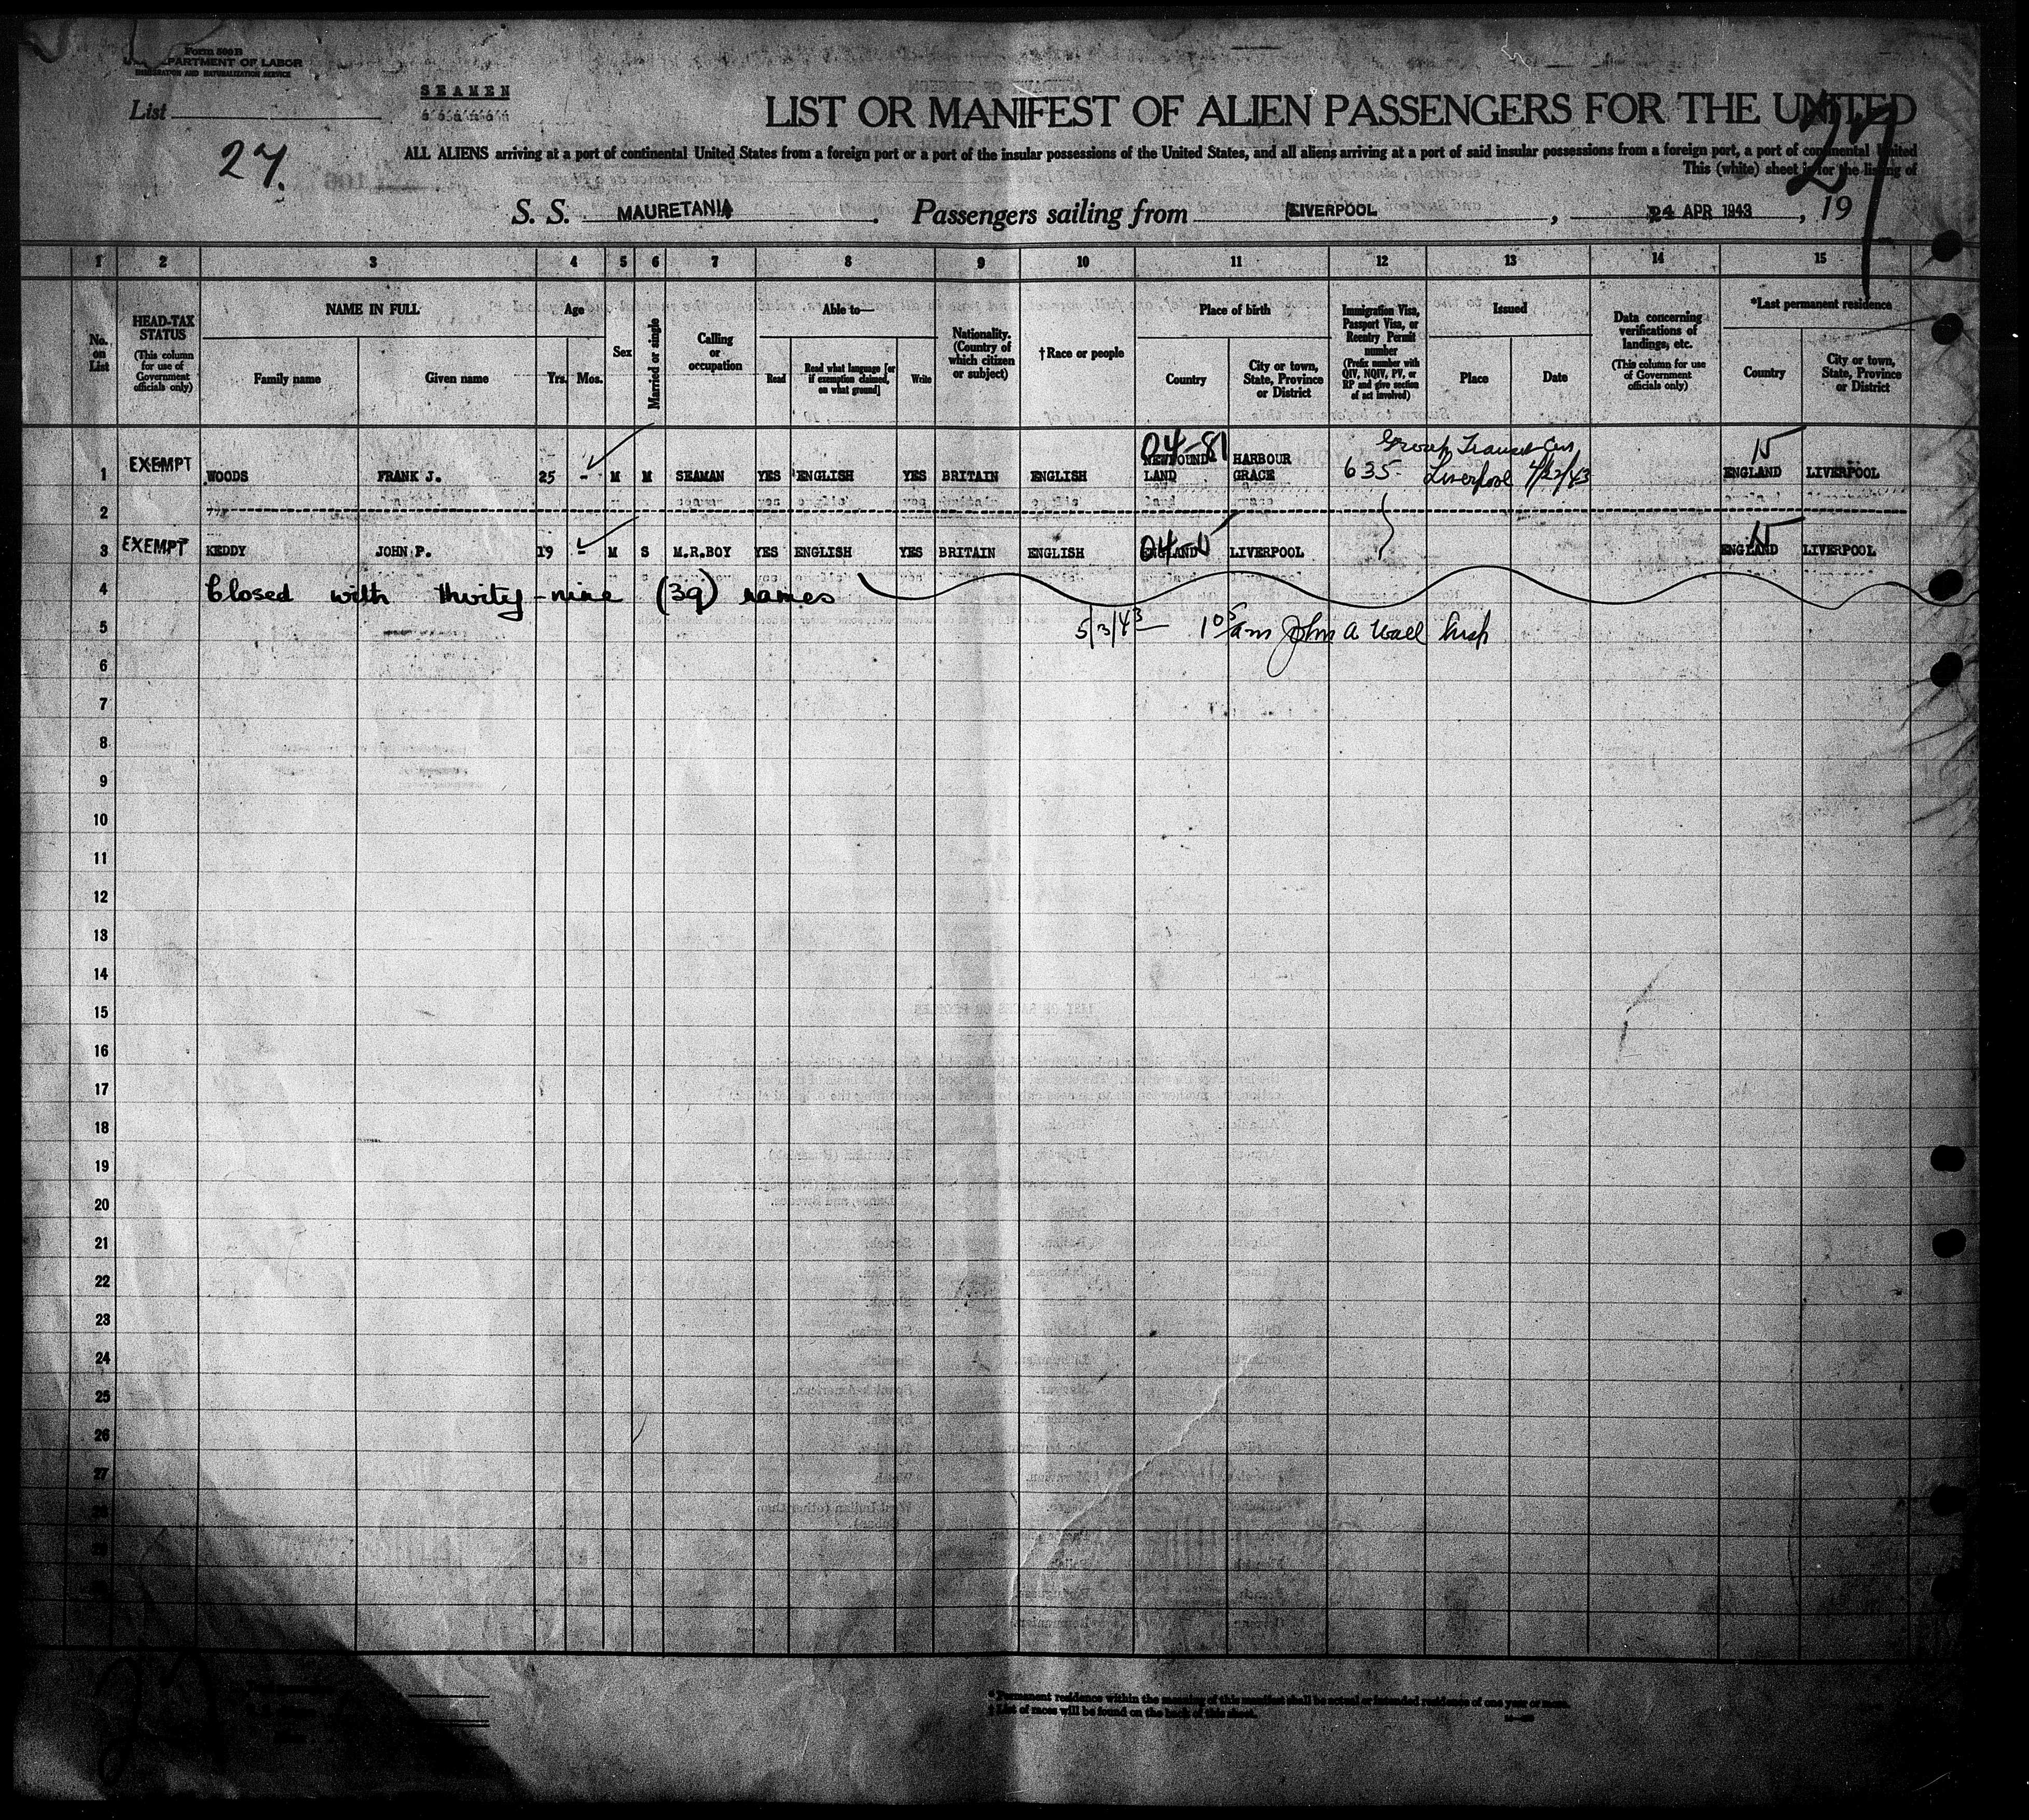 Form 500B
DEPARTMENT OF LABOR
IMMIGRATION AND NATURALIZATION SERVICE
SEAMEN
List
27.
LIST OR MANIFEST OF ALIEN PASSENGERS FOR THE UNITED
27
ALL ALIENS arriving at a port of continental United States from a foreign port or a port of the insular possessions of the United States, and all aliens arriving at a port of said insular possessions from a foreign port, a port of continental United
This (white) sheet is for the listing of
S. S. MAURETANIA. Passengers sailing from LIVERPOOL, 24 APR 1943, 19
1 2 3 4 5 6 7 8 9 10 11 12 13 14 15
No. on List
HEAD-TAX STATUS (This column for use of Government officials only)
NAME IN FULL
Family name
Given name
Age
Yrs. Mos.
Sex
Married or single
Calling or occupation
Able to—
Read
Read what language [or if exemption claimed, on what ground]
Write
Nationality. (Country of which citizen or subject)
†Race or people
Place of birth
Country
City or town, State, Province or District
Immigration Visa, Passport Visa, or Reentry Permit number (Prefix number with QIV, NQIV, PV, or RP and give section of act involved)
Issued
Place
Date
Data concerning verifications of landings, etc. (This column for use of Government officials only)
*Last permanent residence
Country
City or town, State, Province or District
04-81 Group Transit 15
1 EXEMPT WOODS FRANK J. 25 - M M SEAMAN YES ENGLISH YES BRITAIN ENGLISH NEWFOUND LAND HARBOUR GRACE 635 Liverpool 4/22/43 ENGLAND LIVERPOOL
2
3 EXEMPT KEDDY JOHN P. 19 - M S M.R.BOY YES ENGLISH YES BRITAIN ENGLISH ENGLAND LIVERPOOL ENGLAND LIVERPOOL
4 Closed with thirty-nine (39) names
5 5/3/43 - 10 am John A Wall Insp
6
7
8
9
10
11
12
13
14
15
16
17
18
19
20
21
22
23
24
25
26
27
28
29
*Permanent residence within the meaning of this manifest shall be actual or intended residence of one year or more.
†List of races will be found on the back of this sheet.